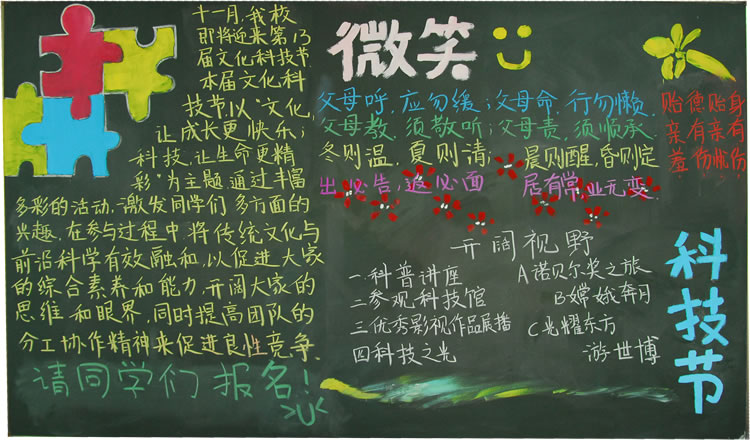 十一月,我校
即将迎来第13
届文化科技节
本届文化科
技节,以"文化,
让成长更快乐;
科技,让生命更精
彩"为主题,通过丰富
多彩的活动,激发同学们多方面的
兴趣,在参与过程中将传统文化与
前沿科学有效融和,以促进大家
的综合素养和能力,开阔大家的
思维和眼界,同时提高团队的
分工协作精神来促进良性竞争.
请同学们报名!
微笑
父母呼,应勿缓;父母命,行勿懒.
父母教,须敬听;父母责,须顺承
冬则温,夏则清;晨则醒,昏则定
出必告,返必面 居有常,业无变.
贻德贻身
亲有亲有
羞伤忧伤
开阔视野
一科普讲座
二参观科技馆
三优秀影视作品展播
四科技之光
A诺贝尔奖之旅
B嫦娥奔月
C光耀东方
游世博
科技节